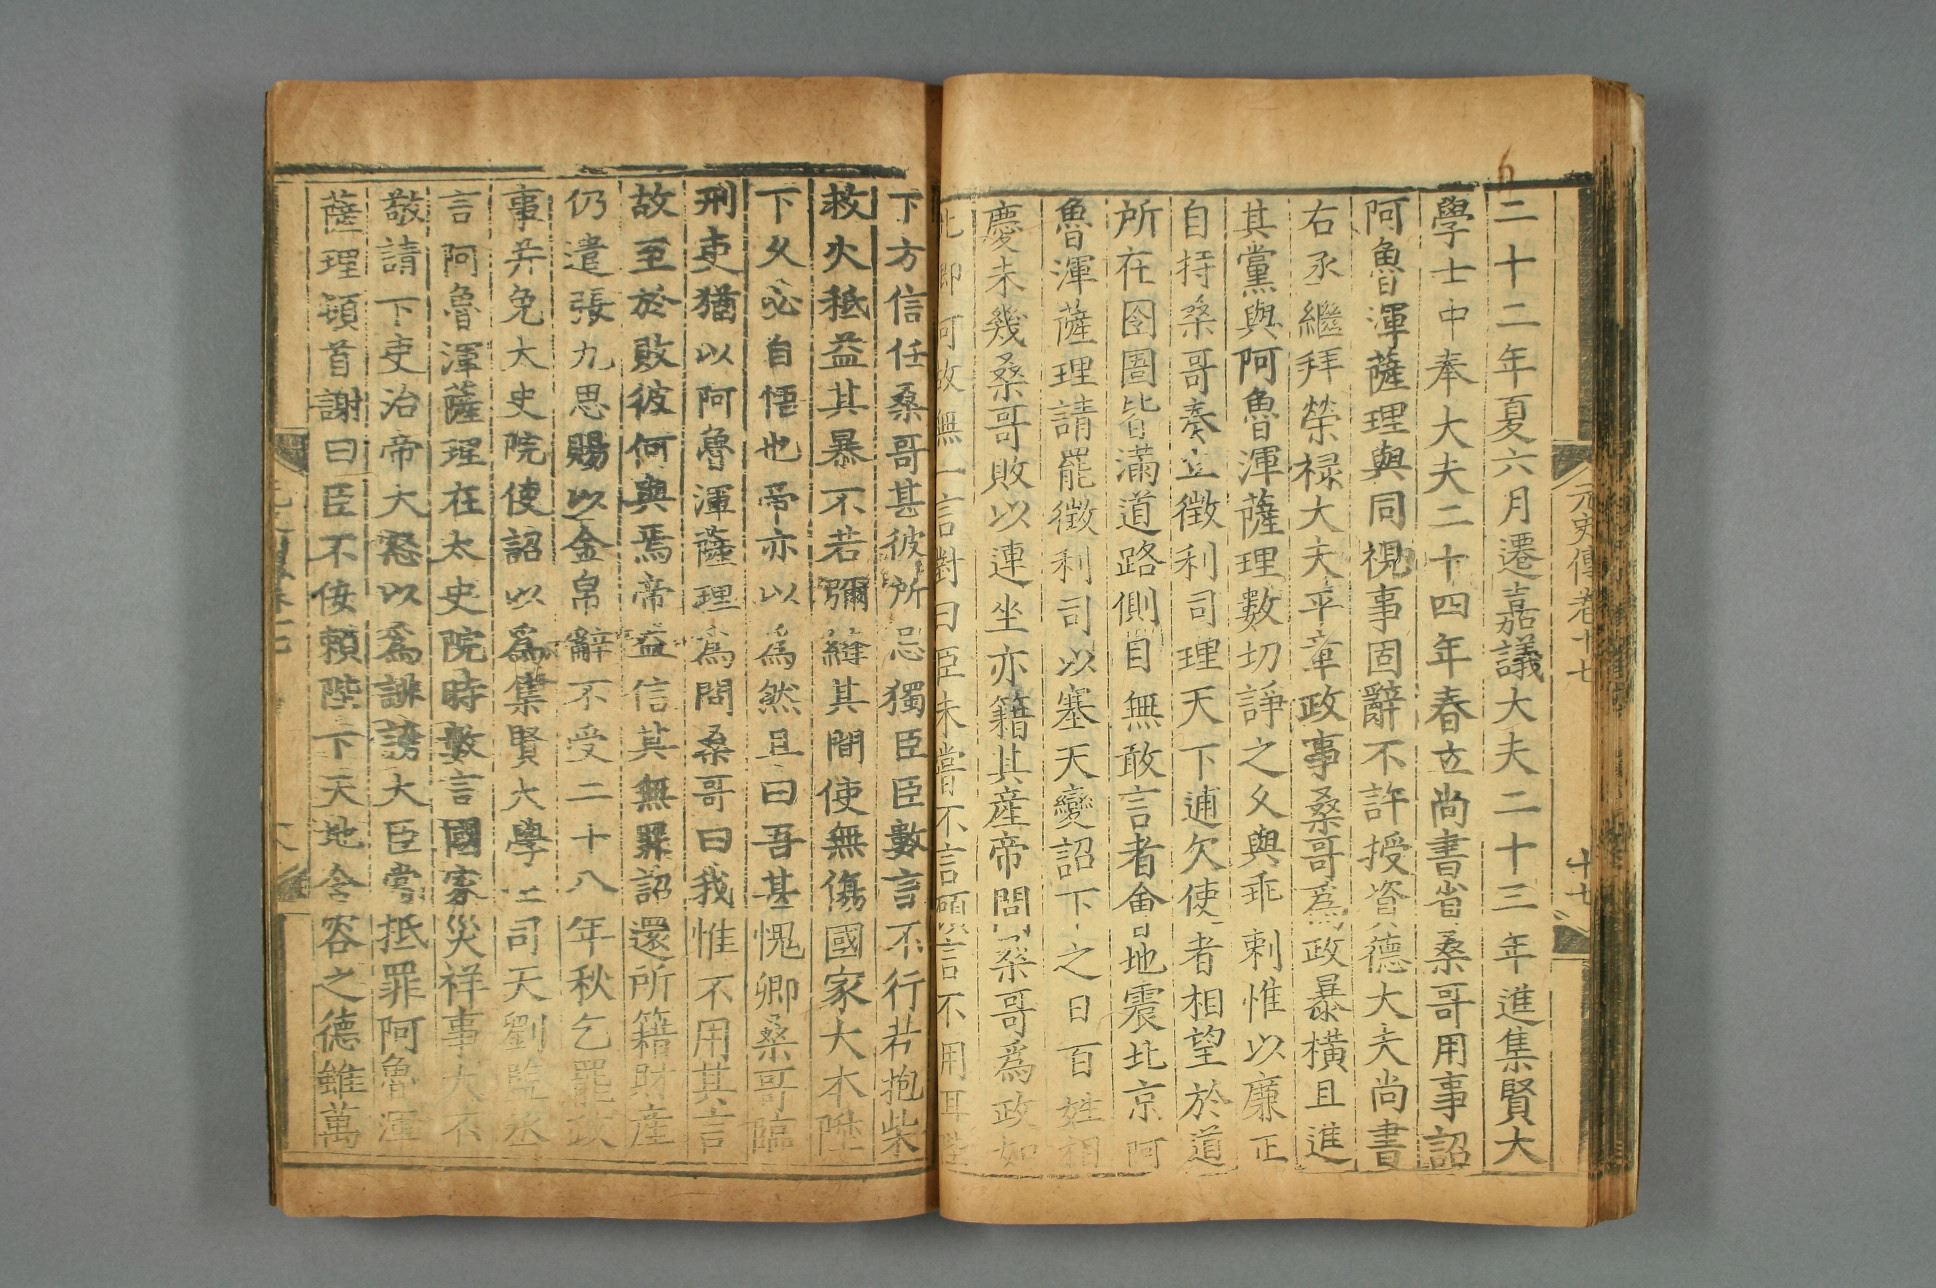 元史傳卷十七
十七
二十二年夏六月遷嘉議大夫二十三年進集賢大
學士中奉大夫二十四年春立尚書省桑哥用事詔
阿魯渾薩理與同視事固辭不許授資德大夫尚書
右丞繼拜榮祿大夫平章政事桑哥爲政暴橫且進
其黨與阿魯渾薩理數切諍之久與乖剌惟以廉正
自持桑哥奏立徵利司理天下逋欠使者相望於道
所在囹圄皆滿道路側目無敢言者會地震北京阿
魯渾薩理請罷徵利司以塞天變詔下之日百姓相
慶未幾桑哥敗以連坐亦籍其産帝問桑哥爲政如
此卿何故無一言對曰臣未嘗不言顧言不用耳陛
下方信任桑哥甚彼所忌獨臣臣數言不行若抱柴
救火秪益其暴不若彌縫其間使無傷國家大本陛
下久必自悟也帝亦以爲然且曰吾甚愧卿桑哥臨
刑吏猶以阿魯渾薩理爲問桑哥曰我惟不用其言
故至於敗彼何與焉帝益信其無罪詔還所籍財産
仍遣張九思賜以金帛辭不受二十八年秋乞罷政
事并免太史院使詔以爲集賢大學士司天劉監丞
言阿魯渾薩理在太史院時數言國家災祥事大不
敬請下吏治帝大怒以爲誹謗大臣當抵罪阿魯渾
薩理頓首謝曰臣不佞賴陛下天地含容之德雖萬